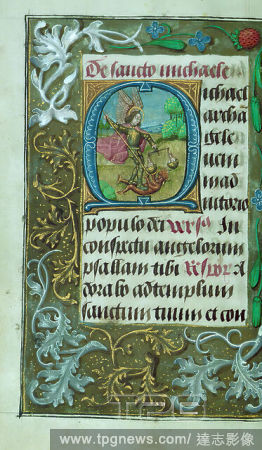 De sancto michaele
Michael
archa
gele
veni
in ad
iutorio
populo dei vers9 In
conspectu angelorum
psallam tibi Respor A
dorabo ad templum
sanctum tuum et con
TPG
www.tpgnews.com/ 達志影像